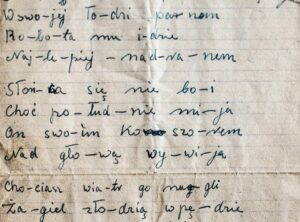 Wswo-jej ło-dzi pan nam
Ro-bo-ta mu i-dzie
Naj-le-piej - nad-ra-nem
Słoń-ca się nie bo-i
Choć po-łud-nie mi-ja
On swo-im ka szo-nem
Nad gło-wą wy-wi-ja
Cho-ciaż wia-tr go na-gli
Ża-giel zło-dzią w pę-dzie